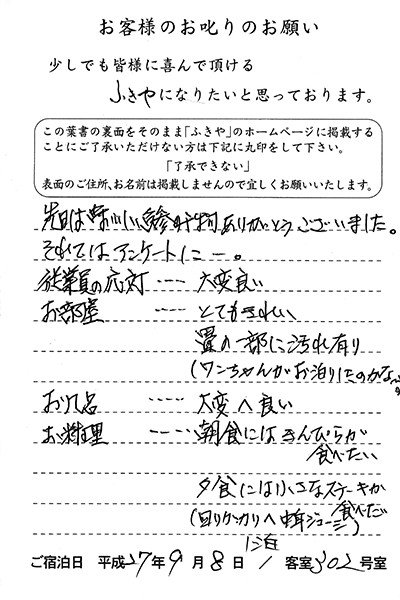 お客様のお叱りのお願い
少しでも皆様に喜んで頂ける
ふきやになりたいと思っております。
この葉書の裏面をそのまま「ふきや」のホームページに掲載する
ことにご了承いただけない方は下記に丸印をして下さい。
「了承できない」
表面のご住所、お名前は掲載しませんので宜しくお願いいたします。
先日は ありがとうございました。
それではアンケートに―。
従業員の応対 ---- 大変良い
お部屋 ---- とてもきれい
畳の一部に汚れ有り
(ワンちゃんがお泊りしたのかな
お風呂 ---- 大変良い
お料理 ---- 朝食にはきんぴらが
食べたい
夕食には小さなステーキが
食べたい
1泊
ご宿泊日 平成27年9月8日 / 客室302号室